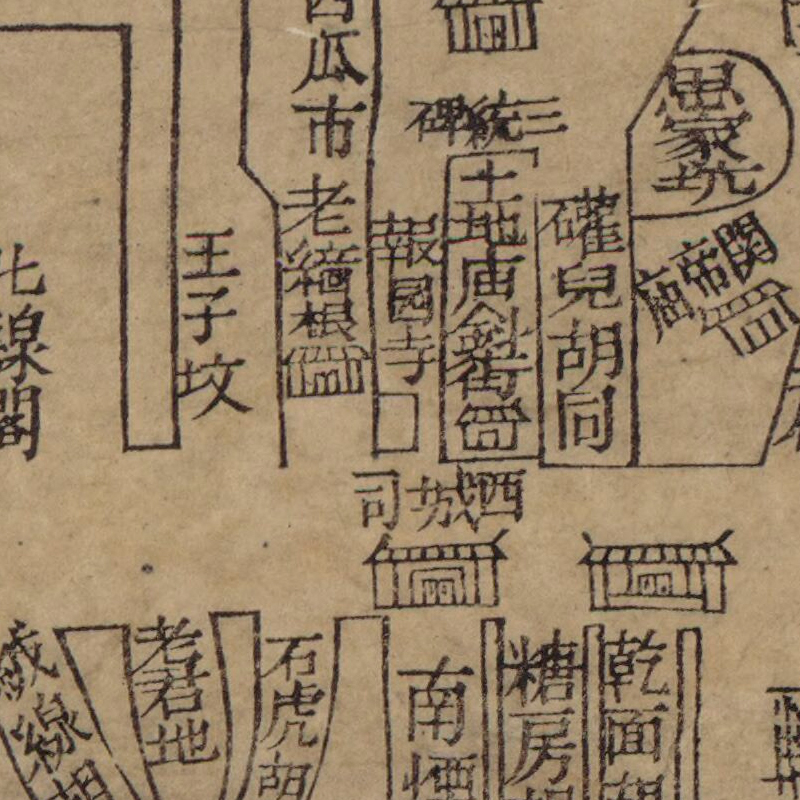 思家坑
關帝廟
礶兒胡同
三統碑
土地庙斜街
報國寺
西瓜市
老繒根
王子坟
北線閣
西城司
乾面胡
糖房胡
南煙
石虎胡
老君地
線胡